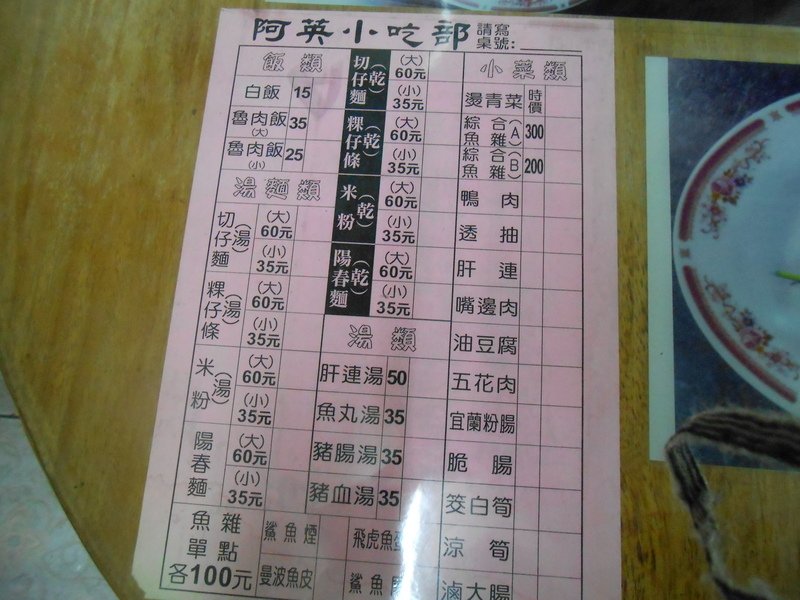 阿英小吃部 請寫桌號:
飯類
白飯 15
魯肉飯(大) 35
魯肉飯(小) 25
湯麵類
切仔麵(湯) (大) 60元
(小) 35元
粿仔條(湯) (大) 60元
(小) 35元
米粉(湯) (大) 60元
(小) 35元
陽春麵 (大) 60元
(小) 35元
魚雜單點各100元
鯊魚煙
曼波魚皮
飛虎魚
鯊魚
切仔麵(乾) (大) 60元
(小) 35元
粿仔條(乾) (大) 60元
(小) 35元
米粉(乾) (大) 60元
(小) 35元
陽春麵(乾) (大) 60元
(小) 35元
湯類
肝連湯 50
魚丸湯 35
豬腸湯 35
豬血湯 35
小菜類
燙青菜 時價
綜合魚雜(A) 300
綜合魚雜(B) 200
鴨肉
透抽
肝連
嘴邊肉
油豆腐
五花肉
宜蘭粉腸
脆腸
筊白筍
涼筍
滷大腸